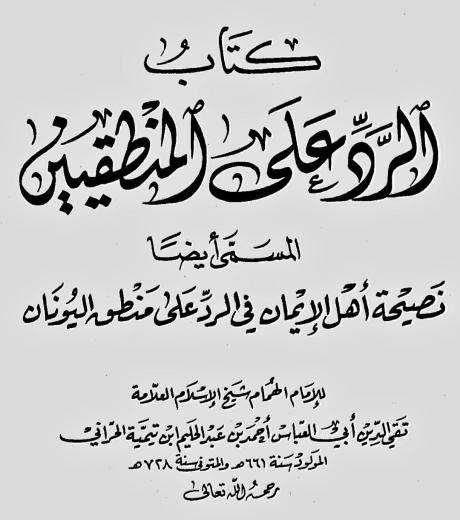 كتاب
الرد على المنطقيين
المسمى أيضا
نصيحة أهل الإيمان في الرد على منطق اليونان
للإمام الهمام شيخ الإسلام العلامة
تقي الدين أبي العباس أحمد بن عبد الحليم ابن تيمية الحراني
المولود سنة ٦٦١ هـ والمتوفى سنة ٧٢٨ هـ
رحمه الله تعالى